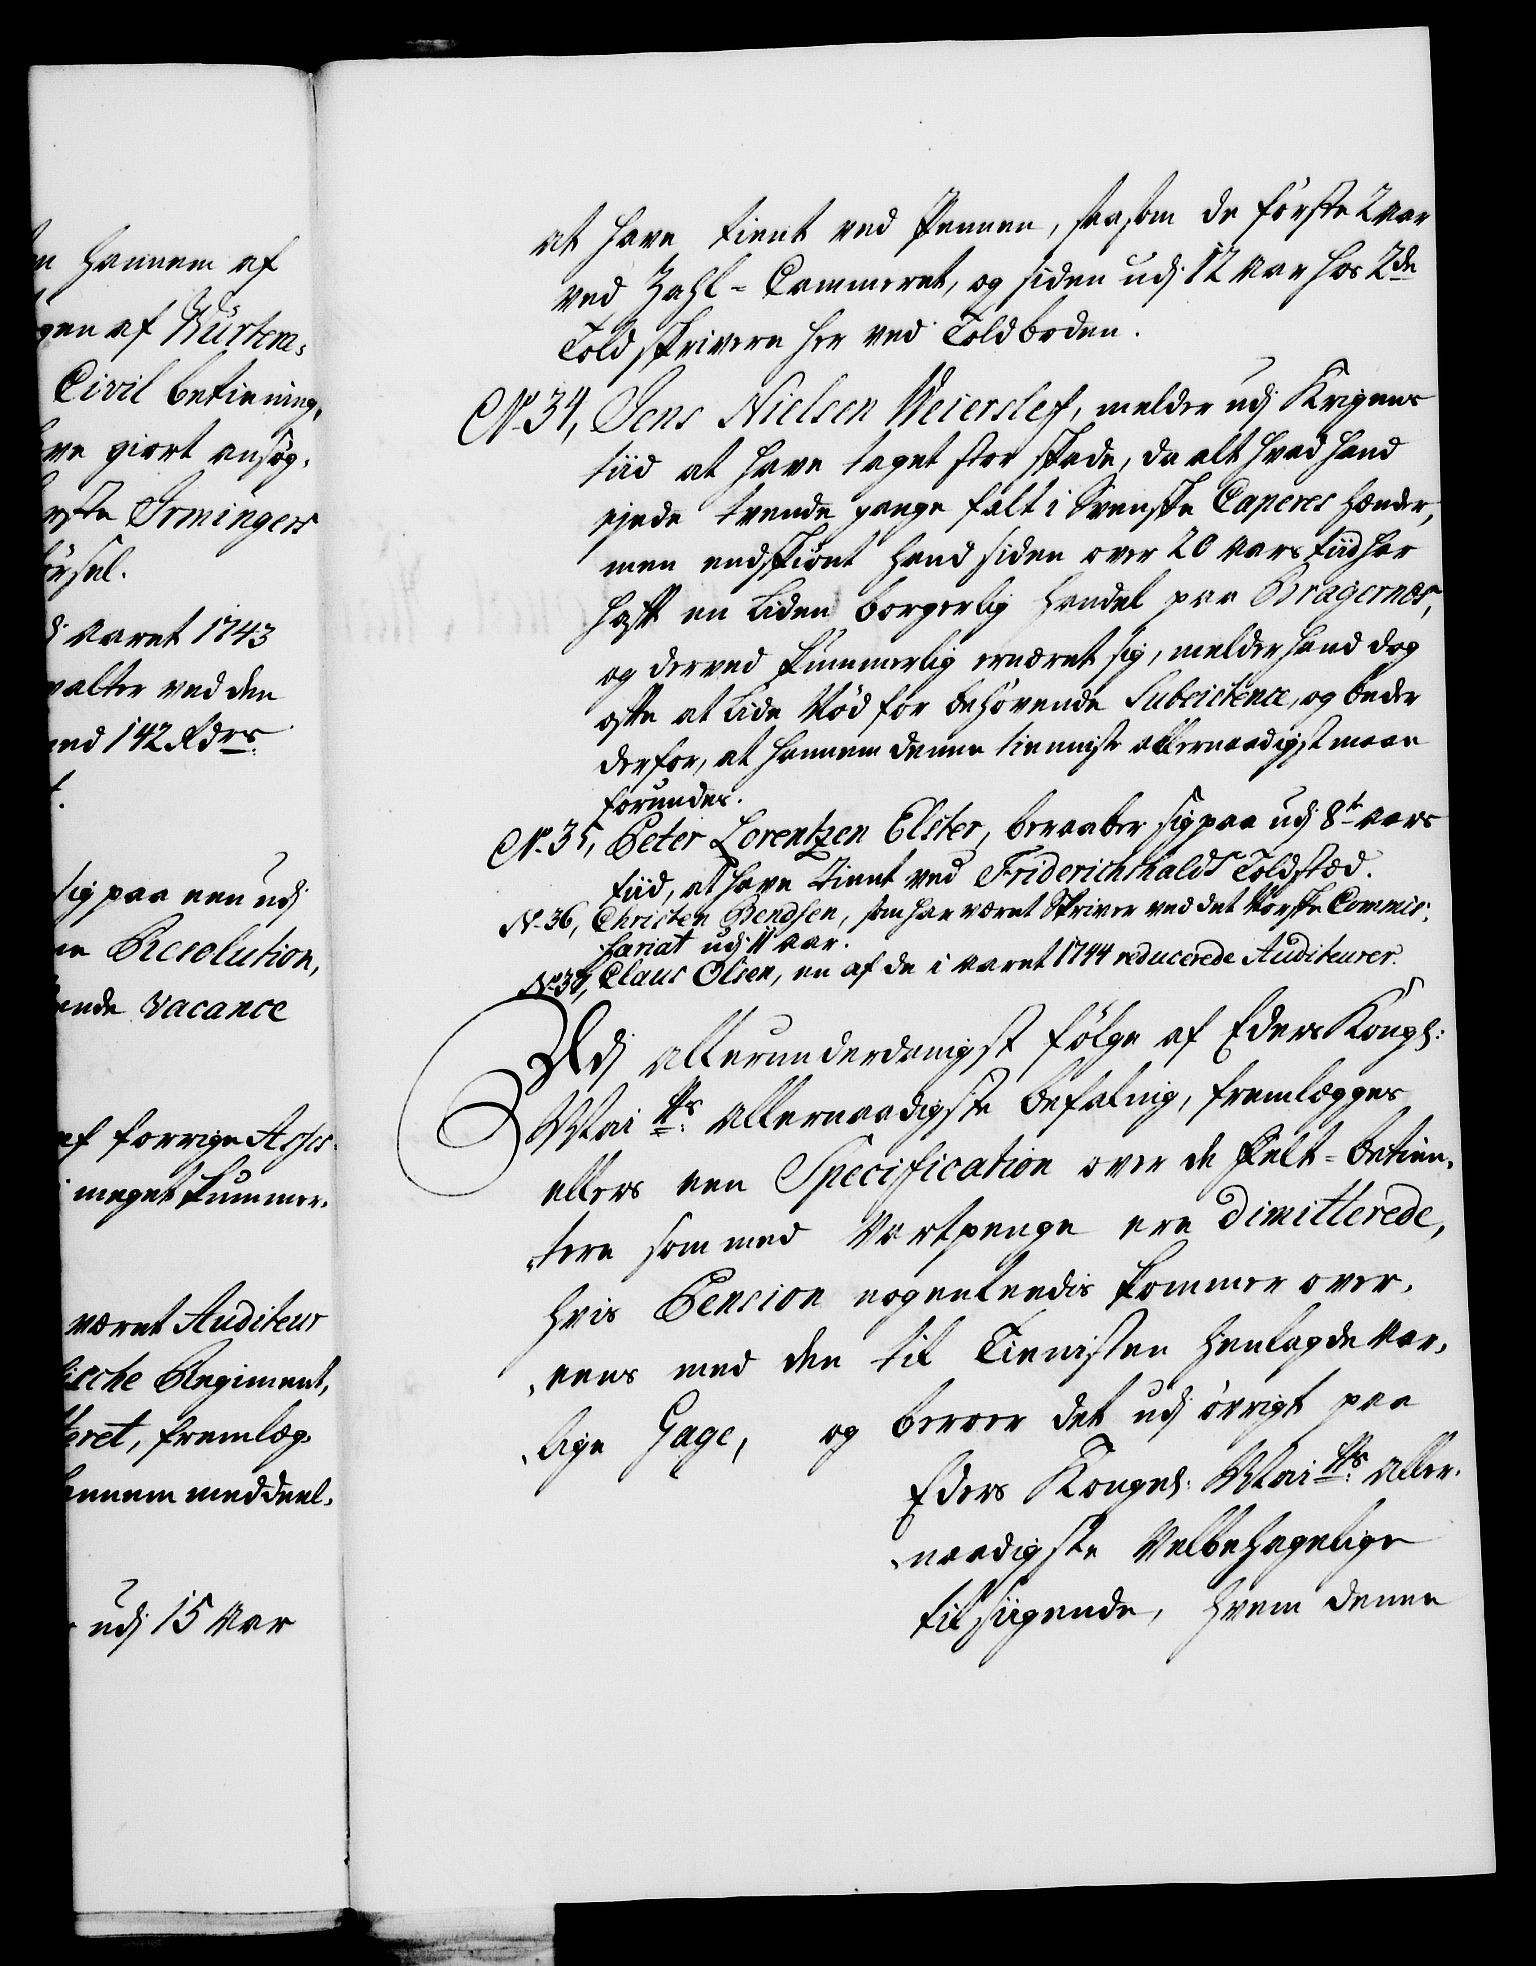 hannem af
gen af Würtem¬
Civil betiening,
giort ansög¬
Irmingers
aaret 1743
valter ved den
ved 142 Rdrs
sig paa een udj
Resolution,
vacance
af forrige Asses¬
meget kummer¬
været Auditeur
Regiment,
fremlæg¬
hannem meddeel¬
udj 15 Aar
at have tient ved Pennen, saasom de förste 2 aar
ved Zahl-Cammeret, og siden udj 12 aar hos 2de
Toldskrivere her ved Toldboden.
No. 34, Jens Nielsen Weierslef, melder udj Krigens
tiid at have taget stor skade, da alt hvad hand
ejede trende gange falt i Svenske Caperes hænder,
men endskiönt hand siden over 20 aars tiid har
haft en liden borgerlig handel paa Bragernæs,
og derved kummerlig ernæret sig, melder hand dog
ofte at lide Nöd for behövende Subsistence, og beder
derfor, at hannem denne tienniste allernaadigst maae
forundes.
No. 35, Peter Lorentzen Elster, beraaber sig paa udj 8te aars
tiid, at have tient ved Friderichshalds Toldstæd.
No. 36, Christen Bendsen, som har været Skriver ved det Norske Commis¬
hariat udj 11 aar.
No. 37, Claus Olsen, en af de i aaret 1744 reducerede Auditeurer.
Udj allerunderdanigst fölge af Eders Kongl:
Maits: allernaadigste befaling, fremlægges
ellers een Specification over de Felt-betien¬
tere som med Vartpenge ere dimitterede,
hvis Pension nogenleedis kommer over¬
eens med den til Tienisten henlagde aar¬
lige Gage, og beroer det udj övrigt paa
Eders Kongel: Maits: aller¬
naadigste Velbehagelige
tilsigende, hvem denne